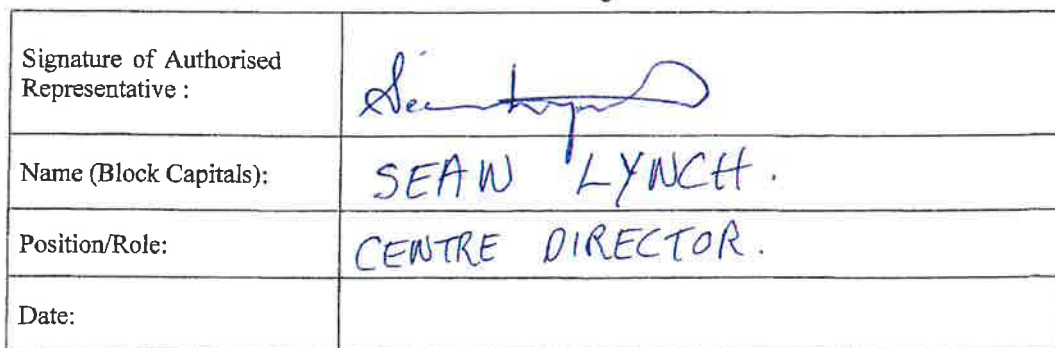 Signature of Authorised
Representative :
Sean Lynch
Name (Block Capitals): SEAN LYNCH.
Position/Role: CENTRE DIRECTOR.
Date: